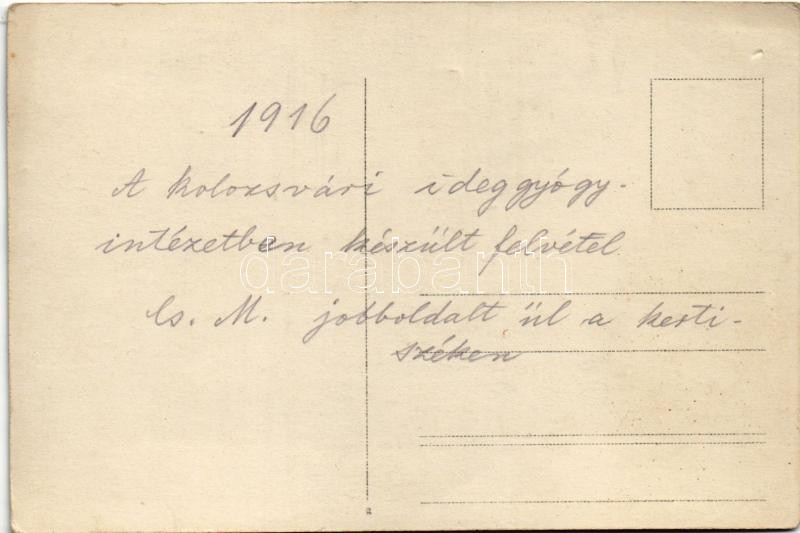 1916
A kolozsvári ideggyógy-
intézetben készült felvétel
darabanth
Cs. M. jobboldalt ül a kerti-
széken